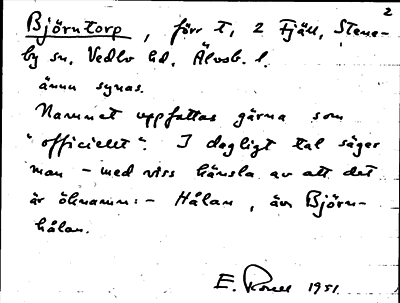 2
Björntorp, förr t, 2 Fjäll, Stene-
by sn, Vedbo hd, Älvsb. l.
ännu synas.
Namnet uppfattas gärna som
"officiellt". I dagligt tal säger
man - med viss känsla av att det
är öknamn: - Hålan, äv. Björn-
hålan.
E. 1951.